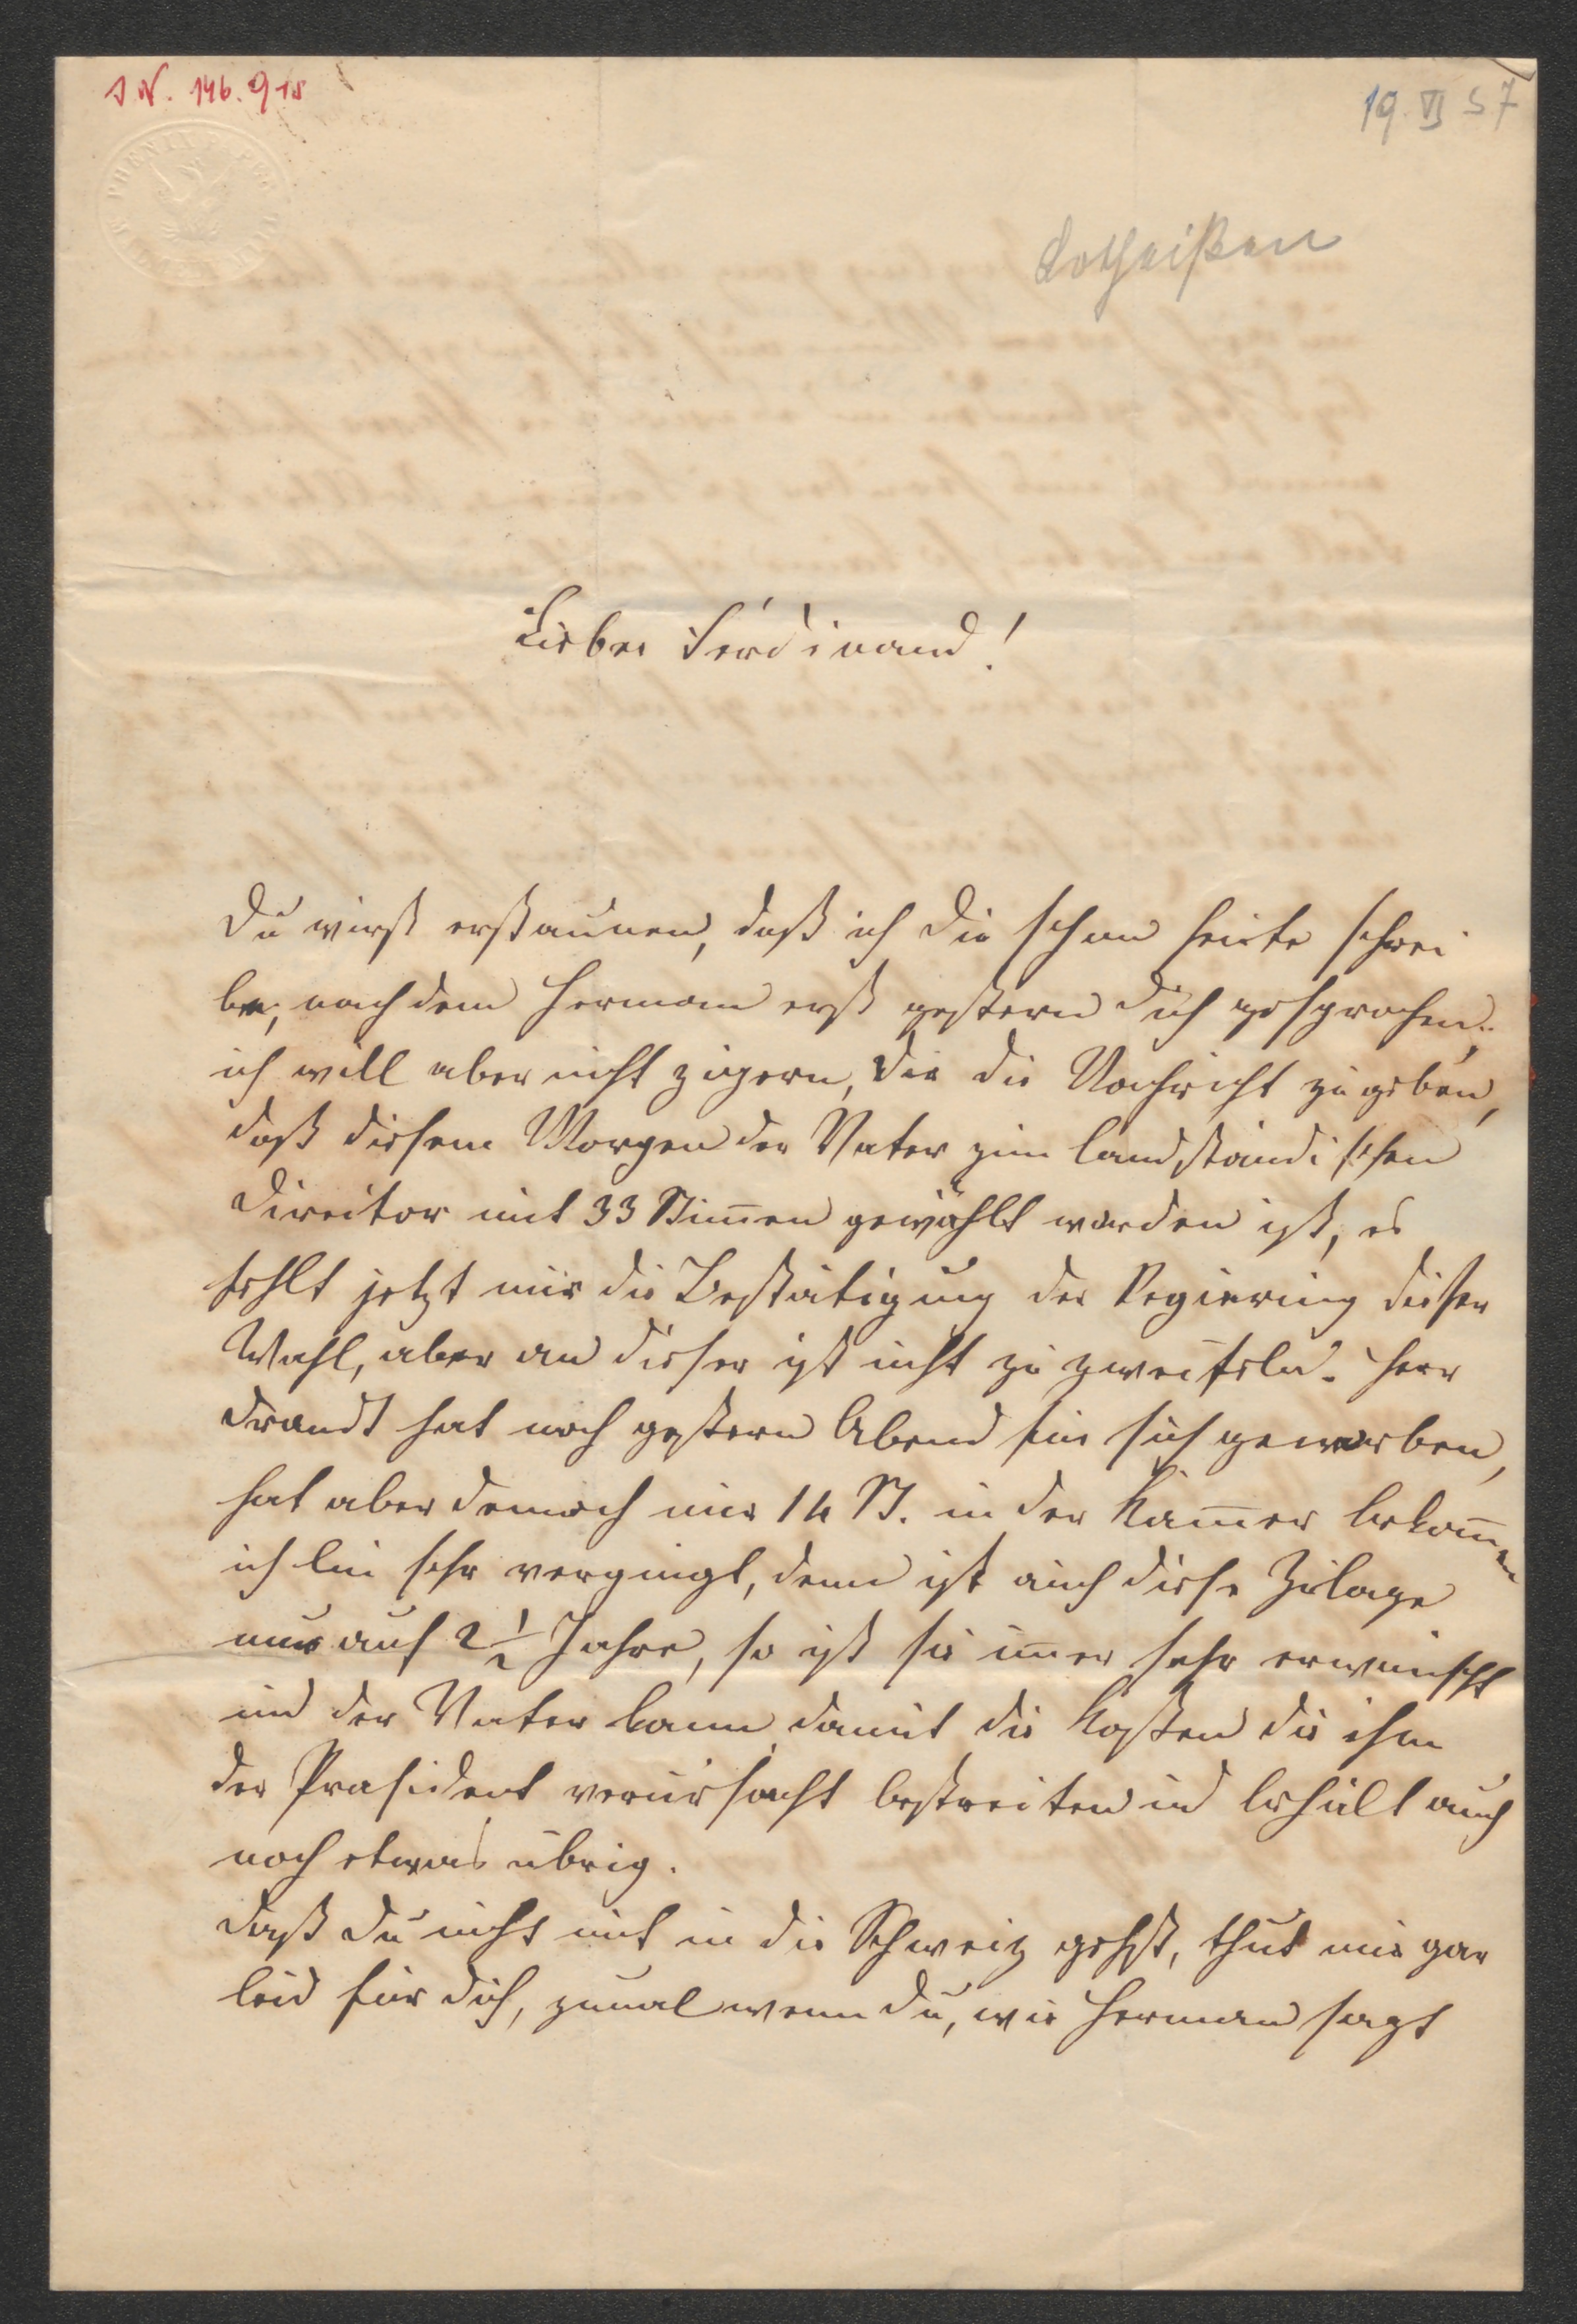 I N. 146.918
19. VI 57
Lotheißen
Lieber Ferdinand!
Du wirst erstaunen, daß ich Dir schon heute schrei
be, nachdem Hermann erst gestern Dich gesprochen;
ich will aber nicht zögern, Dir die Nachricht zu geben,
daß diesem Morgen der Vater zum landständischen
Direitor mit 33 Stim̄en gewählt worden ist, es
fehlt jetzt nur die Bestätigung der Regierung dieser
Wahl, aber an dieser ist nicht zu zweifeln. Herr
Drandt hat noch gestern Abend für sich geworben,
hat aber dennoch nur 14 St. in der Kam̄er bekom̄en
ich bin sehr vergnügt, denn ist auch diese Zulage
nur auf 2 1/2 Jahre, so ist sie im̄er sehr erwünscht
und der Vater kann damit die Kosten die ihm
der Präsident verursacht bestreiten und behält auch
noch etwas übrig.
Daß Du nicht mit in die Schweiz gehst, thut mir gar
leid für Dich, zumal wenn Du, wie Herman sagt